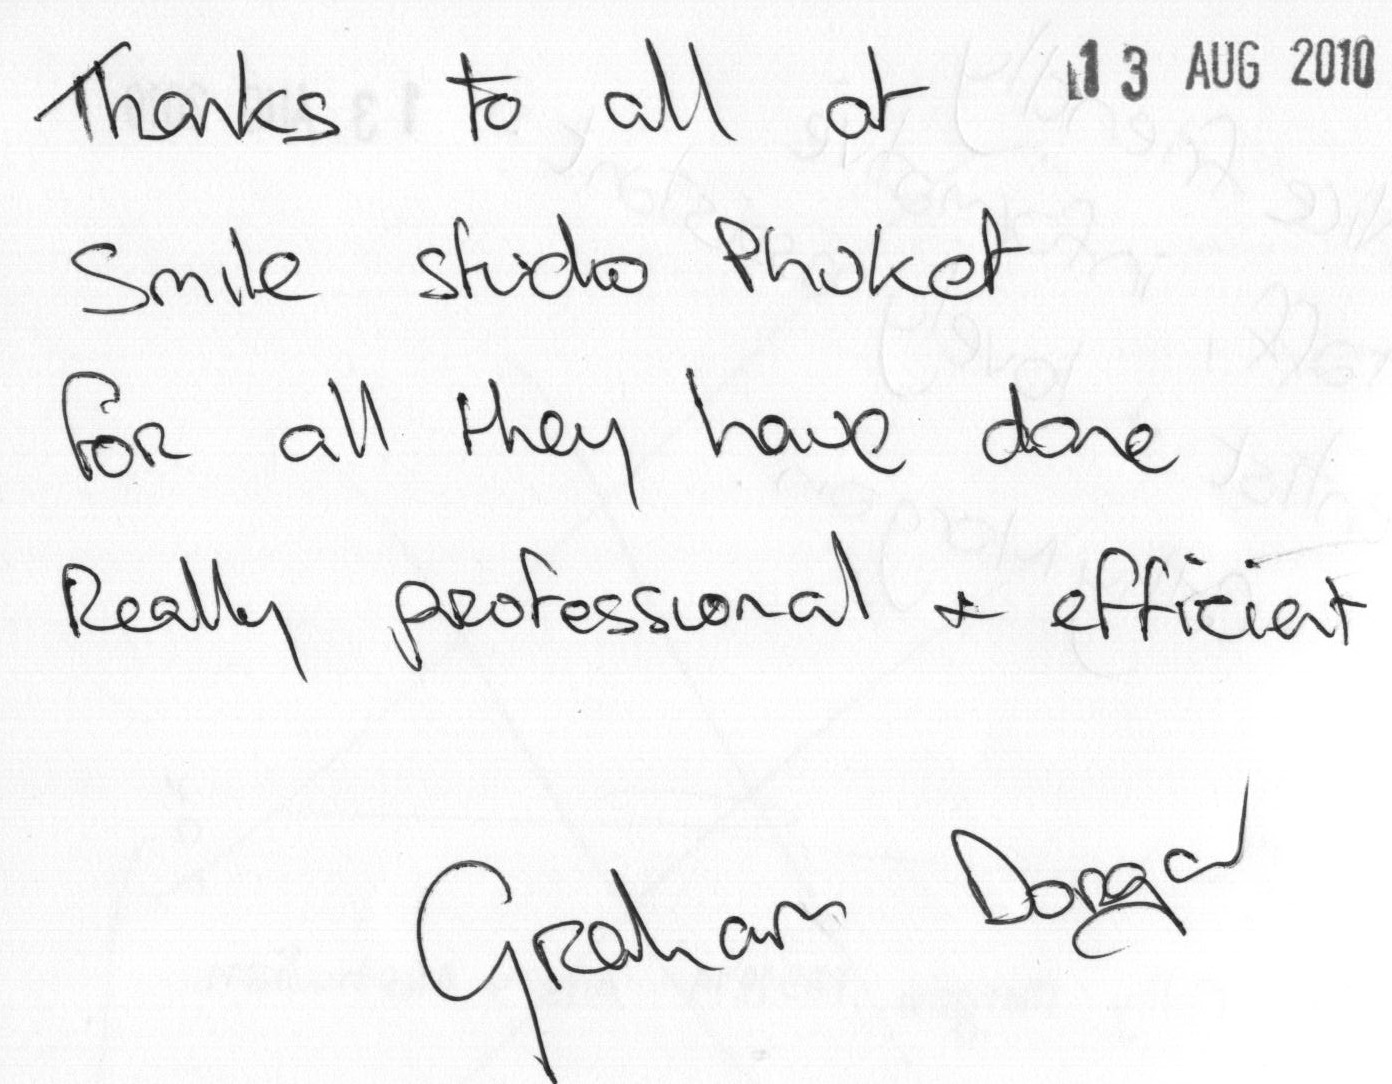 13 AUG 2010
Thanks to all at
Smile studio Phuket
for all they have done
Really professional + efficient
Graham